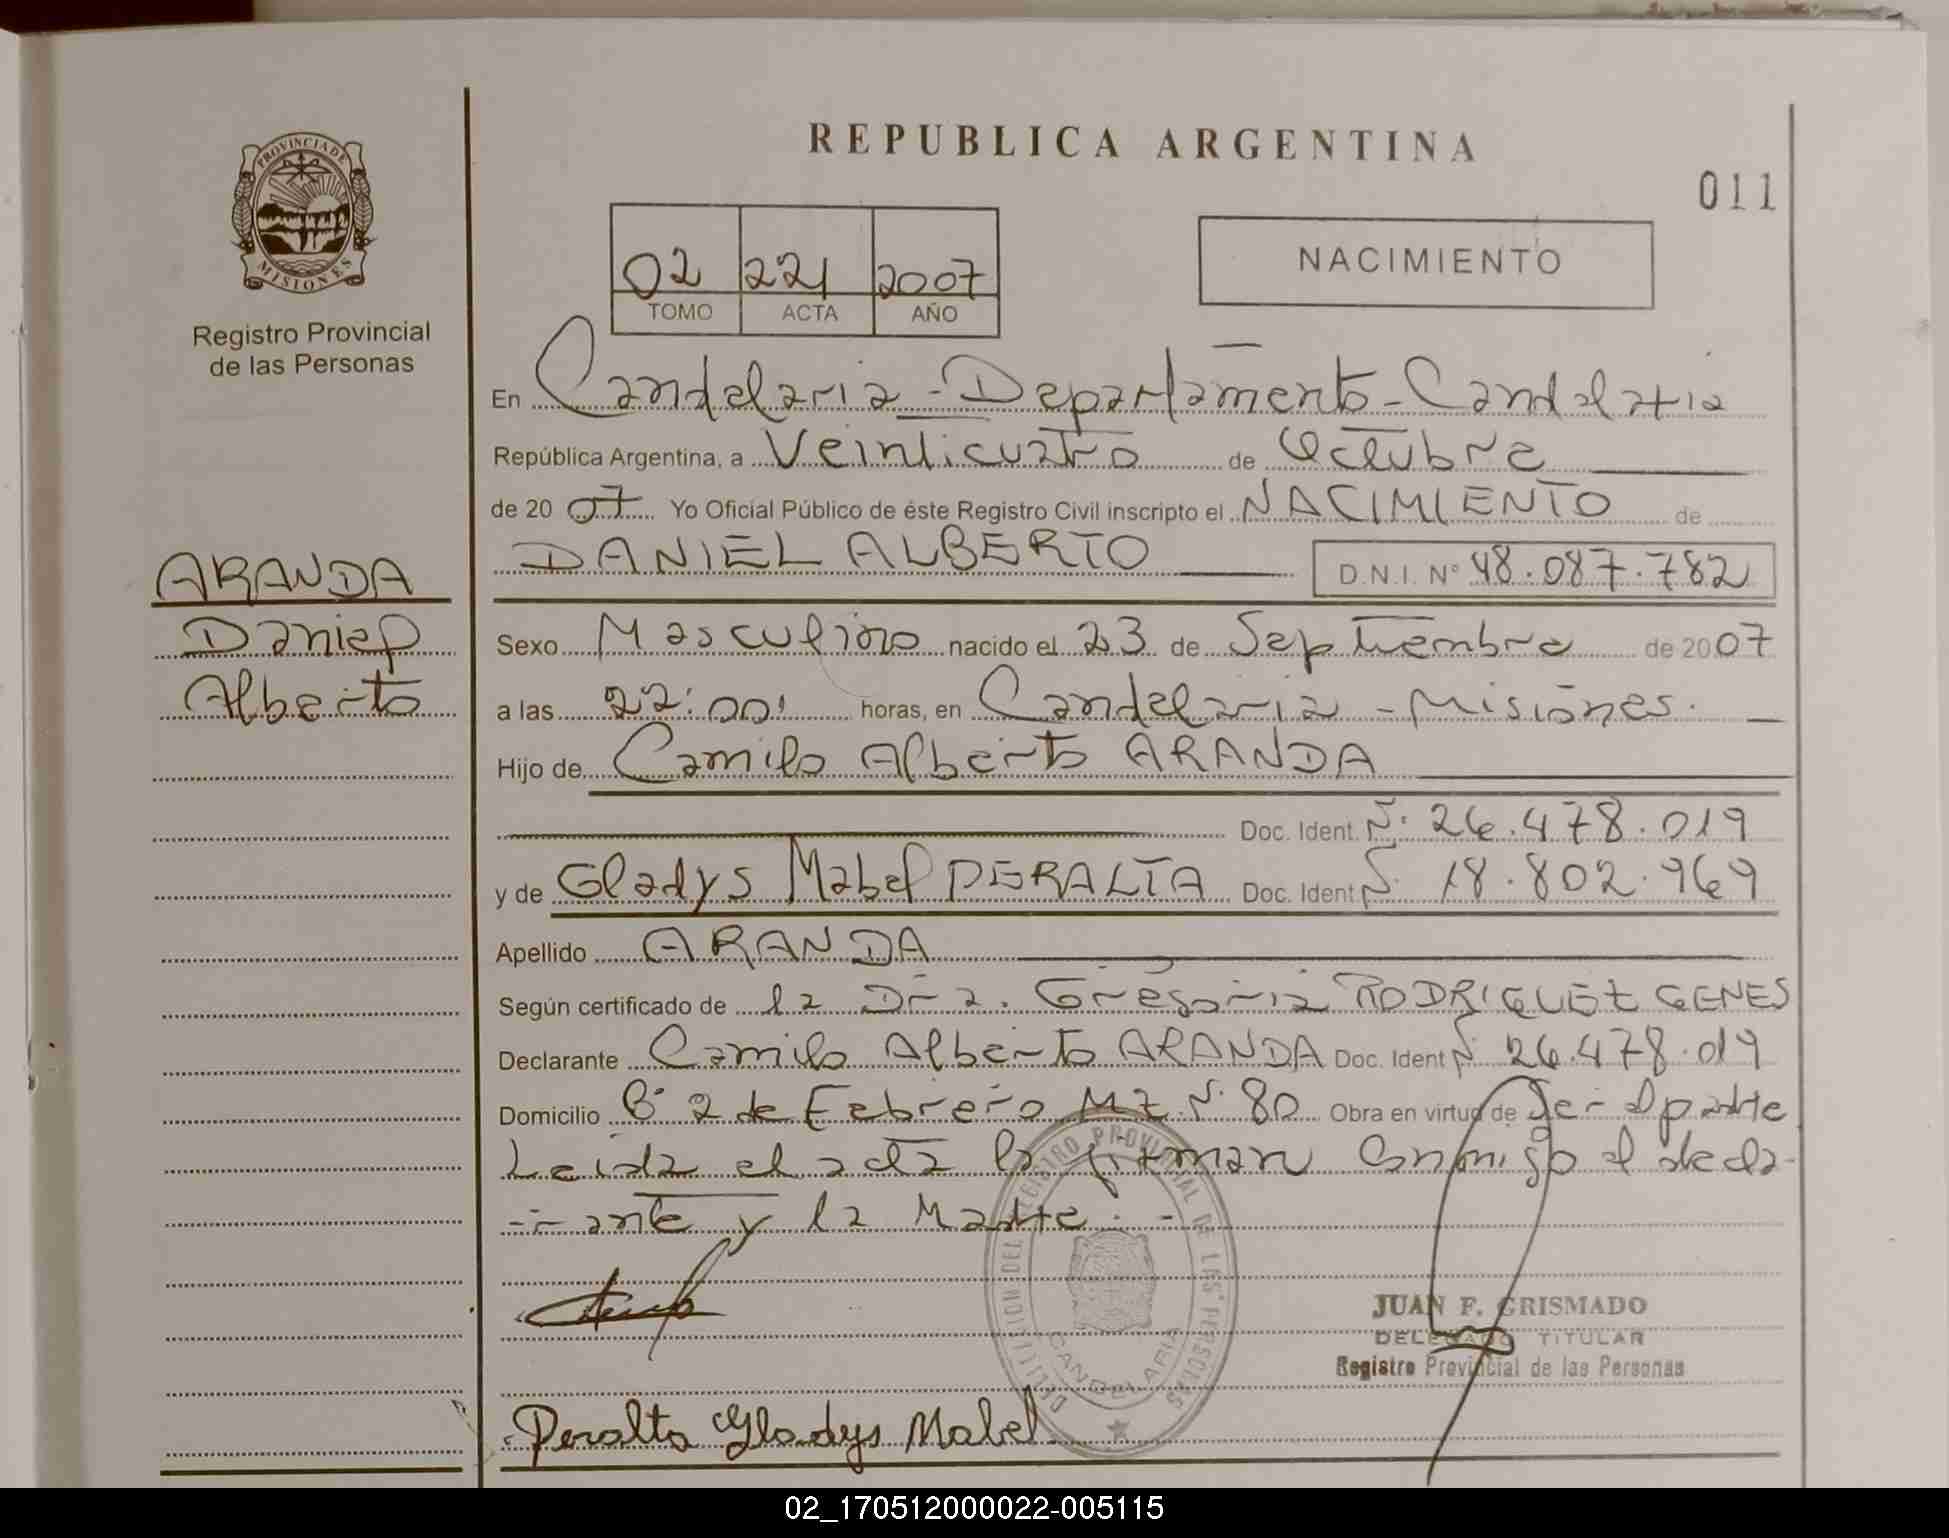 REPUBLICA ARGENTINA
011
PROVINCIA DE
MISIONES
Registro Provincial
de las Personas
02 221 2007
TOMO ACTA AÑO
NACIMIENTO
En Candelaria - Departamento - Candelaria
República Argentina, a Veinticuatro de Octubre
de 2007 Yo Oficial Público de éste Registro Civil inscripto el NACIMIENTO de
DANIEL ALBERTO D.N.I. N° 48.087.782
ARANDA
Daniel
Alberto
Sexo Masculino nacido el 23 de Septiembre de 2007
a las 22:00' horas, en Candelaria - Misiones.
Hijo de Camilo Alberto ARANDA
Doc. Ident. N° 26.478.019
y de Gladys Mabel PERALTA Doc. Ident N° 18.802.969
Apellido ARANDA
Según certificado de la Dra. Gregoria RODRIGUEZ GENES
Declarante Camilo Alberto ARANDA Doc. Ident N° 26.478.019
Domicilio B° 2 de Febrero MZ N° 80 Obra en virtud de Ser el padre
Leida el acta la firman conmigo el decla-
-rante y la Madre. -
DELEGACION DEL REGISTRO PROVINCIAL DE LAS PERSONAS
CANDELARIA
JUAN F. GRISMADO
DELEGADO TITULAR
Registro Provincial de las Personas
Peralta Gladys Mabel
02_170512000022-005115